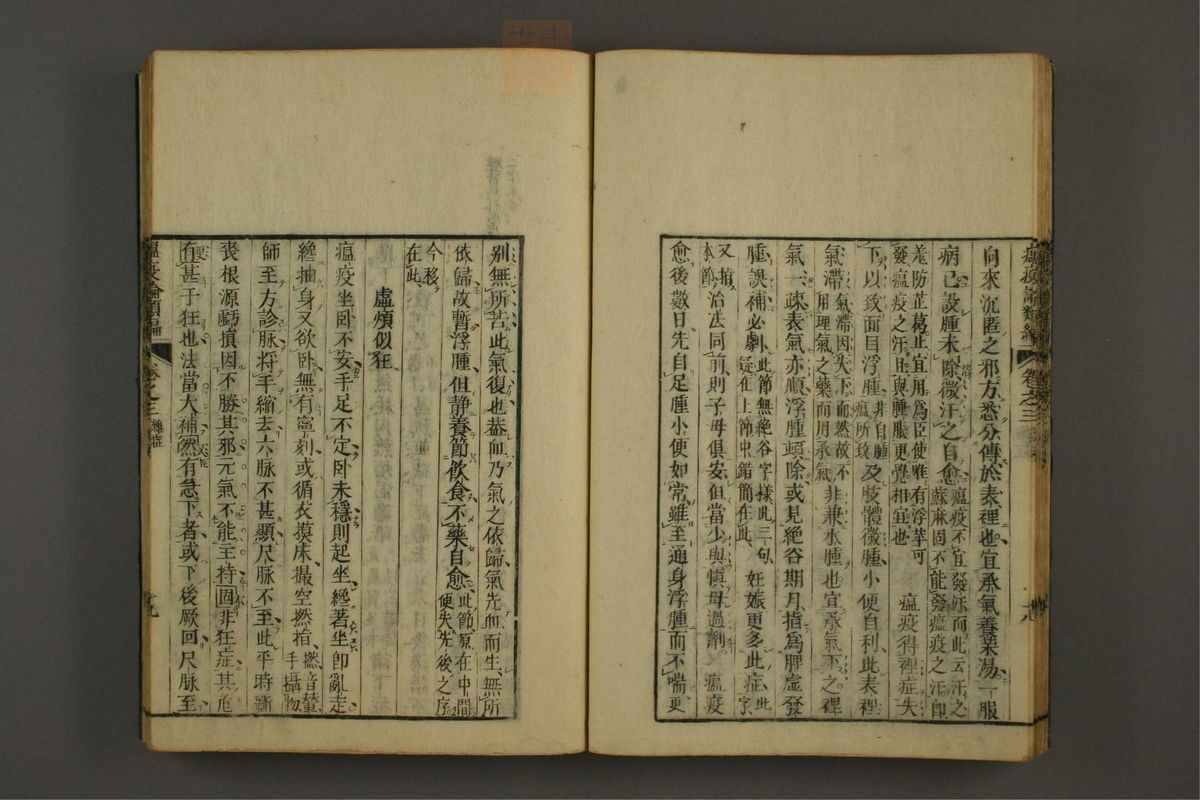 向來沉匿之邪方悉分傳於表裡也宜承氣養榮湯一服
病已設腫未除微汗之自愈瘟疫不宜發汗而此云汗之蘇麻固不能發瘟疫之汗即
羌防芷葛止宜用為臣使唯有浮萍可發瘟疫之汗且與腫脹更覺相宜也 瘟疫得裡症失
下以致面目浮腫非自腫瘟所致及肢體微腫小便自利此表裡
氣滯氣滯因失下而然故不用理氣之藥而用承氣非兼水腫也宜承氣下之裡
氣一疎表氣亦順浮腫頓除或見絕谷期月指為脾虛發
腫誤補必劇此節無絕谷字樣此三句疑在上節中錯簡在此 妊娠更多此症此字
又指本節治法同前則子母俱安但當少與慎毋過劑 瘟疫
愈後數日先自足腫小便如常雖至通身浮腫而不喘更
別無所苦此氣復也蓋血乃氣之依歸氣先血而生無所
依歸故暫浮腫但静養節飲食不藥自愈此節原在中間便失先後之序
今移在此
虛煩似狂
瘟疫坐卧不安手足不定卧未穩則起坐纔著坐即亂走
纔抽身又欲卧無有寧刻或循衣摸床撮空撚指撚音輦手攝物
師至方診脉将手縮去六脉不甚顯尺脉不至此平時斲
喪根源虧損因不勝其邪元氣不能主持固非狂症其危
有甚于狂也法當大補然有急下者或下後厥回尺脉至
瘟疫論類編
卷之三
瘟疫論類編
卷之三 雜症